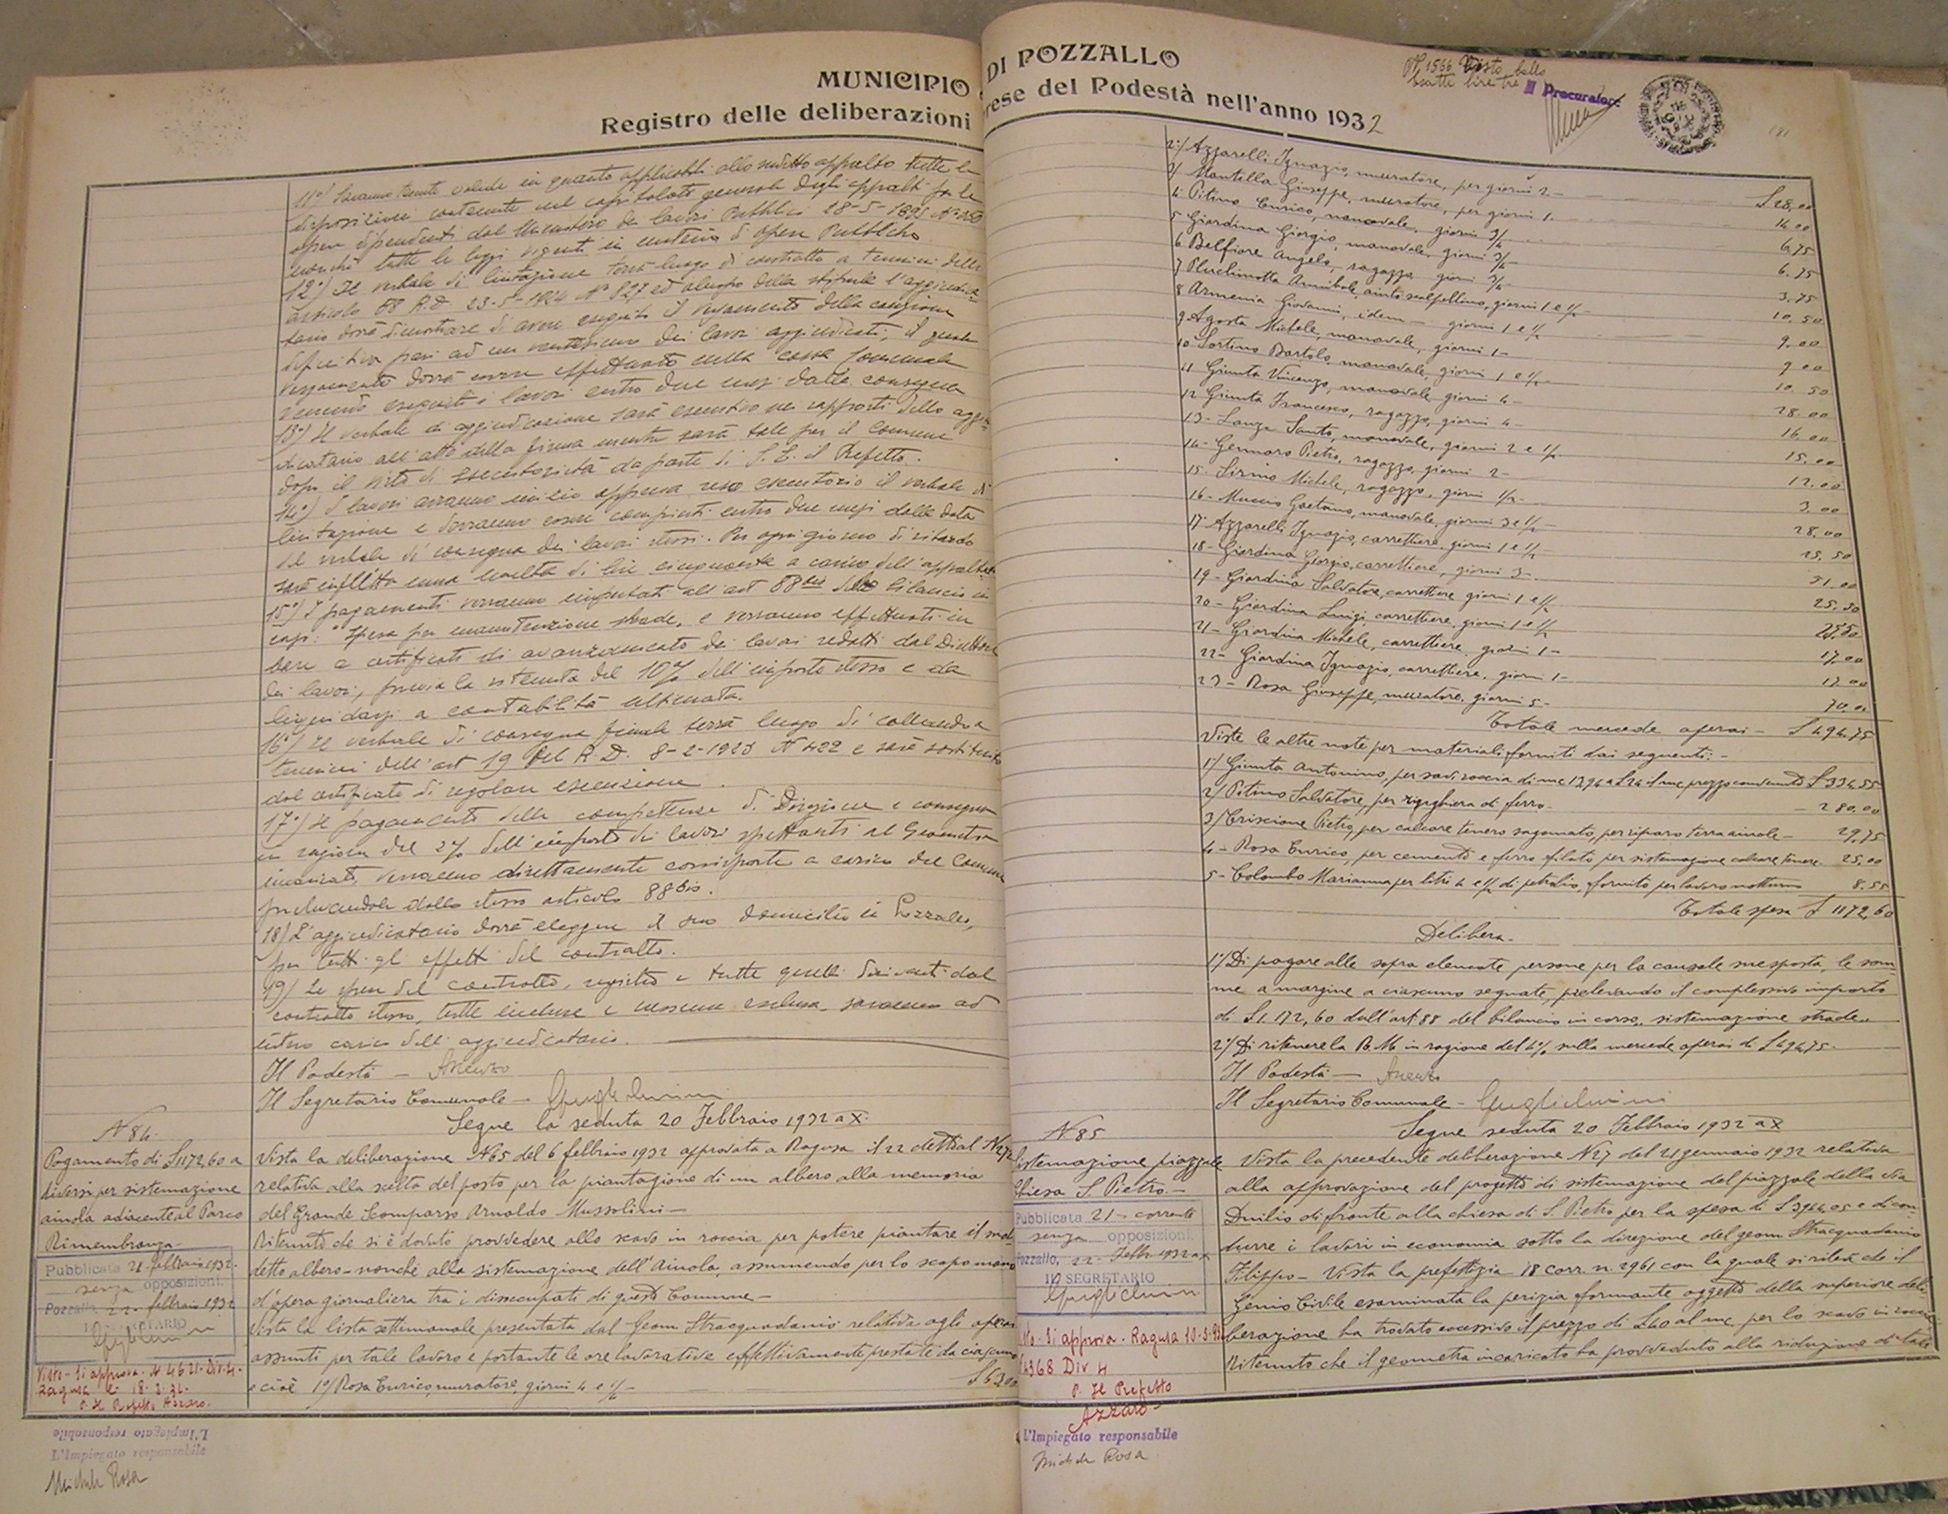 MUNICIPIO DI POZZALLO
Registro delle deliberazioni prese del Podestà nell'anno 1932
Visto bollo
lire tre Il Procuratore
11°) Saranno tenute valide in quanto applicabili allo appalto tutte le
disposizioni contenute nel capitolato generale degli appalti per le
opere dipendenti dal Ministero dei lavori Pubblici 28-5-1895 N°
nonchè tutte le leggi vigenti in materia di opere Pubbliche
12°) Il verbale di licitazione terrà luogo di contratto a termini dello
articolo 88 R.D. 23-5-1924 N° 827 ed all'uopo della stipula l'aggiudica-
tario dovrà dimostrare di avere eseguito il versamento della cauzione
definitiva pari ad un ventesimo dei lavori aggiudicati, il quale
versamento dovrà essere effettuato nella cassa Comunale
venendo eseguiti i lavori entro due mesi dalla consegna
13°) Il verbale di aggiudicazione sarà esecutivo nei rapporti dello aggiu-
dicatario all'atto della firma mentre sarà tale per il Comune
dopo il visto di esecutorietà da parte di S. E. il Prefetto.
14°) I lavori avranno inizio appena reso esecutorio il verbale di
licitazione e dovranno essere compiuti entro due mesi dalla data
del verbale di consegna dei lavori stessi. Per ogni giorno di ritardo
sarà inflitta una multa di lire cinquanta a carico dell'appaltatore
15°) I pagamenti verranno imputati all'art 88 bis del bilancio in
corso: "Spesa per manutenzione strade, e verranno effettuati in
base a certificati di avanzamento dei lavori redatti dal Direttore
dei lavori, previa la ritenuta del 10% dell'importo stesso e da
liquidarsi a contabilità ultimata.
16°) Il verbale di consegna finale terrà luogo di collaudo a
termini dell'art 19 del R.D. 8-2-1923 N 422 e sarà sostituito
dal certificato di regolare esecuzione.
17°) Il pagamento delle competenze di Direzione e consegna
in ragione del 2% dell'importo dei lavori spettanti al Geometra
incaricato, verranno direttamente corrisposte a carico del Comune
prelevandole dallo stesso articolo 88 bis.
18) L'aggiudicatario dovrà eleggere il suo domicilio in Pozzallo,
per tutti gli effetti del contratto.
19) Le spese del contratto, registro e tutte quelle derivanti dal
contratto stesso, tutte incluse e nessuna esclusa, saranno ad
intero carico dell'aggiudicatario.
Il Podestà —
Il Segretario Comunale — Guglielmini
Segue la seduta 20 Febbraio 1932 a X.
N 84.
Pagamento di £1172,60 a
diversi per sistemazione
aiuola adiacente al Parco
Rimembranza
Pubblicata 21 febbraio 1932.
senza opposizioni.
Pozzallo, 22 febbraio 1932
IL SEGRETARIO
Guglielmini
Visto - Si approva. N 4621. Div. 4.
Ragusa li 18.3.32.
p. Il Prefetto Azzaro.
L'Impiegato responsabile
L'Impiegato responsabile
Michele Rosa
Vista la deliberazione N65 del 6 febbraio 1932 approvata a Ragusa il 12 detto al N
relativa alla scelta del posto per la piantagione di un albero alla memoria
del Grande Scomparso Arnaldo Mussolini —
Ritenuto che si è dovuto provvedere allo scavo in roccia per potere piantare il sud-
detto albero - nonchè alla sistemazione dell'Aiuola, assumendo per lo scopo mano
d'opera giornaliera tra i disoccupati di questo Comune —
Vista la lista settimanale presentata dal Geom Stracquadanio relativa agli operai
assunti per tale lavoro e portante le ore lavorative effettivamente prestate da ciascuno
e cioè 1°) Rosa Enrico muratore, giorni 4 e ½ — £ 63,00
2°/ Azzarelli Ignazio, muratore, per giorni 2 — £ 28,00
3/ Mantella Giuseppe, muratore, per giorni 1. 14,00
4 Pitino Enrico, manovale, giorni ¾ 6,75
5 Giardina Giorgio, manovale, giorni ¾ 6.75
6 Belfiore Angelo, ragazzo giorni ¾ 3,75
7 Pluchinotta Annibale, aiuto scalpellino, giorni 1 e ½ 10,50
8 Armenia Giovanni, idem — giorni 1 e ½ 9,00
9 Agosta Michele, manovale, giorni 1 — 9,00
10 Sortino Bartolo, manovale, giorni 1 e ½ — 10 50
11 Giunta Vincenzo, manovale giorni 4 — 28,00
12 Giunta Francesco, ragazzo, giorni 4 — 16,00
13 — Lanza Santo, manovale, giorni 2 e ½ 15,00
14 — Gennaro Pietro, ragazzo, giorni 2 — 12.00
15 — Sirino Michele, ragazzo, giorni ½ — 3,00
16 — Muccio Gaetano, manovale, giorni 3 e ½ — 28,00
17 Azzarelli Ignazio, carrettiere, giorni 1 e ½ 25,50
18 — Giardina Giorgio, carrettiere, giorni 3 — 51,00
19 — Giardina Salvatore, carrettiere giorni 1 e ½ 25,50
20 — Giardina Luigi, carrettiere, giorni 1 e ½ 25,50
21 — Giardina Michele, carrettiere, giorni 1 — 17,00
22 — Giardina Ignazio, carrettiere, giorni 1 — 17,00
23 — Rosa Giuseppe, muratore, giorni 5 — 70,00
Totale mercede operai — £ 494,75
Viste le altre note per materiali forniti dai seguenti: —
1°/ Giunta Antonino, per scavi roccia di mc 13,94 a £ 24 il mc prezzo convenuto £ 334,55
2/ Pitino Salvatore, per ringhiera di ferro — 280,00
3/ Criscione Pietro, per calcare tenero sagomato, per riparo terra aiuole — 29,75
4 — Rosa Enrico, per cemento e ferro filato per sistemazione calcare tenero 25,00
5 — Colombo Marianna per litri 4 e ½ di petrolio, fornito per lavoro notturno 8.55
Totale spesa £ 1172,60
Delibera —
1°/ Di pagare alle sopra elencate persone per la causale suesposta, le som-
me a margine a ciascuno segnate, prelevando il complessivo importo
di £1.172,60 dall'art 88 del bilancio in corso, sistemazione strade.
2°/ Di ritenere la R.M. in ragione del 4% sulla mercede operai di £494,75 —
Il Podestà —
Il Segretario Comunale — Guglielmini
Segue seduta 20 Febbraio 1932 a X
N 85
Sistemazione piazzale
Chiesa S. Pietro. —
Pubblicata 21 — corrente
senza opposizioni.
Pozzallo, 22 — Febb. 1932 a X
IL SEGRETARIO
Guglielmini
Si approva. Ragusa 10-3-932
4368 Div 4
p. Il Prefetto
Azzaro
L'Impiegato responsabile
Michele Rosa
Vista la precedente deliberazione N27 del 21 gennaio 1932 relativa
alla approvazione del progetto di sistemazione del piazzale della via
Duilio di fronte alla chiesa di S. Pietro per la spesa di £ 3944,05 e di con-
durre i lavori in economia sotto la direzione del geom Stracquadanio
Filippo — Vista la prefettizia 18 corr. n. 2961 con la quale si rileva che il
Genio Civile esaminata la perizia formante oggetto della superiore deli-
berazione ha trovato eccessivo il prezzo di £40 al mc per lo scavo in roccia
Ritenuto che il geometra incaricato ha provveduto alla riduzione di tale